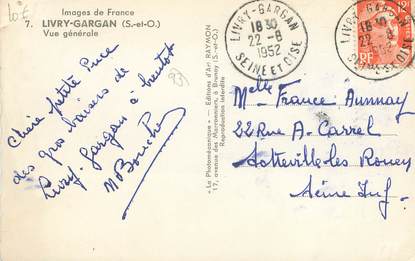 10€
Images de France
7. LIVRY-GARGAN (S.-et-O.)
Vue générale
Chère petite
des gros baisers de
Livry-Gargan à bientôt
« La Photomécanique » - Editions d'Art RAYMON
17, avenue des Marronniers, à Brunoy (S.-et-O.)
Reproduction interdite
LIVRY-GARGAN
18 30
22-8
1952
SEINE ET OISE
LIVRY-GARGAN
18 30
22-8
1952
SEINE ET OISE
RF
Melle France
22 Rue A. Carrel
Sotteville-les Rouen
Seine Inf.